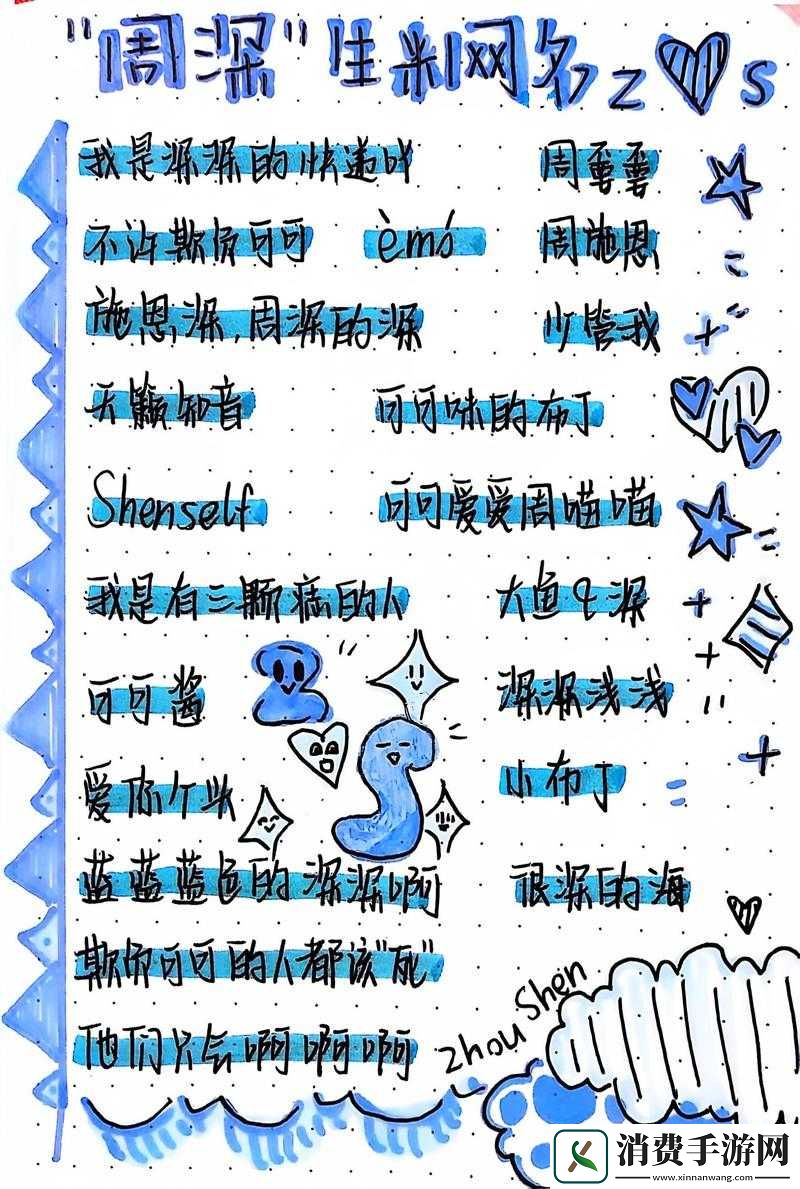 "周深"生米网名 Z S
我是深深的快递吖 周雲雲
不许欺负可可 èmó 周施恩
施恩深,周深的深 少管我
天籁知音 可可味的布丁
Shenself 可可爱爱周喵喵
我是有三颗痣的人 大鱼の深
可可酱 深深浅浅
爱你个头 小布丁
蓝蓝蓝色的深深啊 很深的海
欺负可可的人都该"死"
他们只会啊啊啊 zhou Shen
消费手游网
www.xinnanwang.com